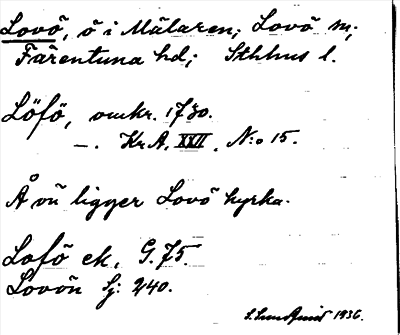 Lovö, ö i Mälaren; Lovö sn;
Färentuna hd; Sthlms l.
Löfö, omkr. 1730.
—. Kr.A. XXII, N:o 15.
Å ön ligger Lovö kyrka.
Lofö ek. G.75.
Lovön Sj: 240.
1936.